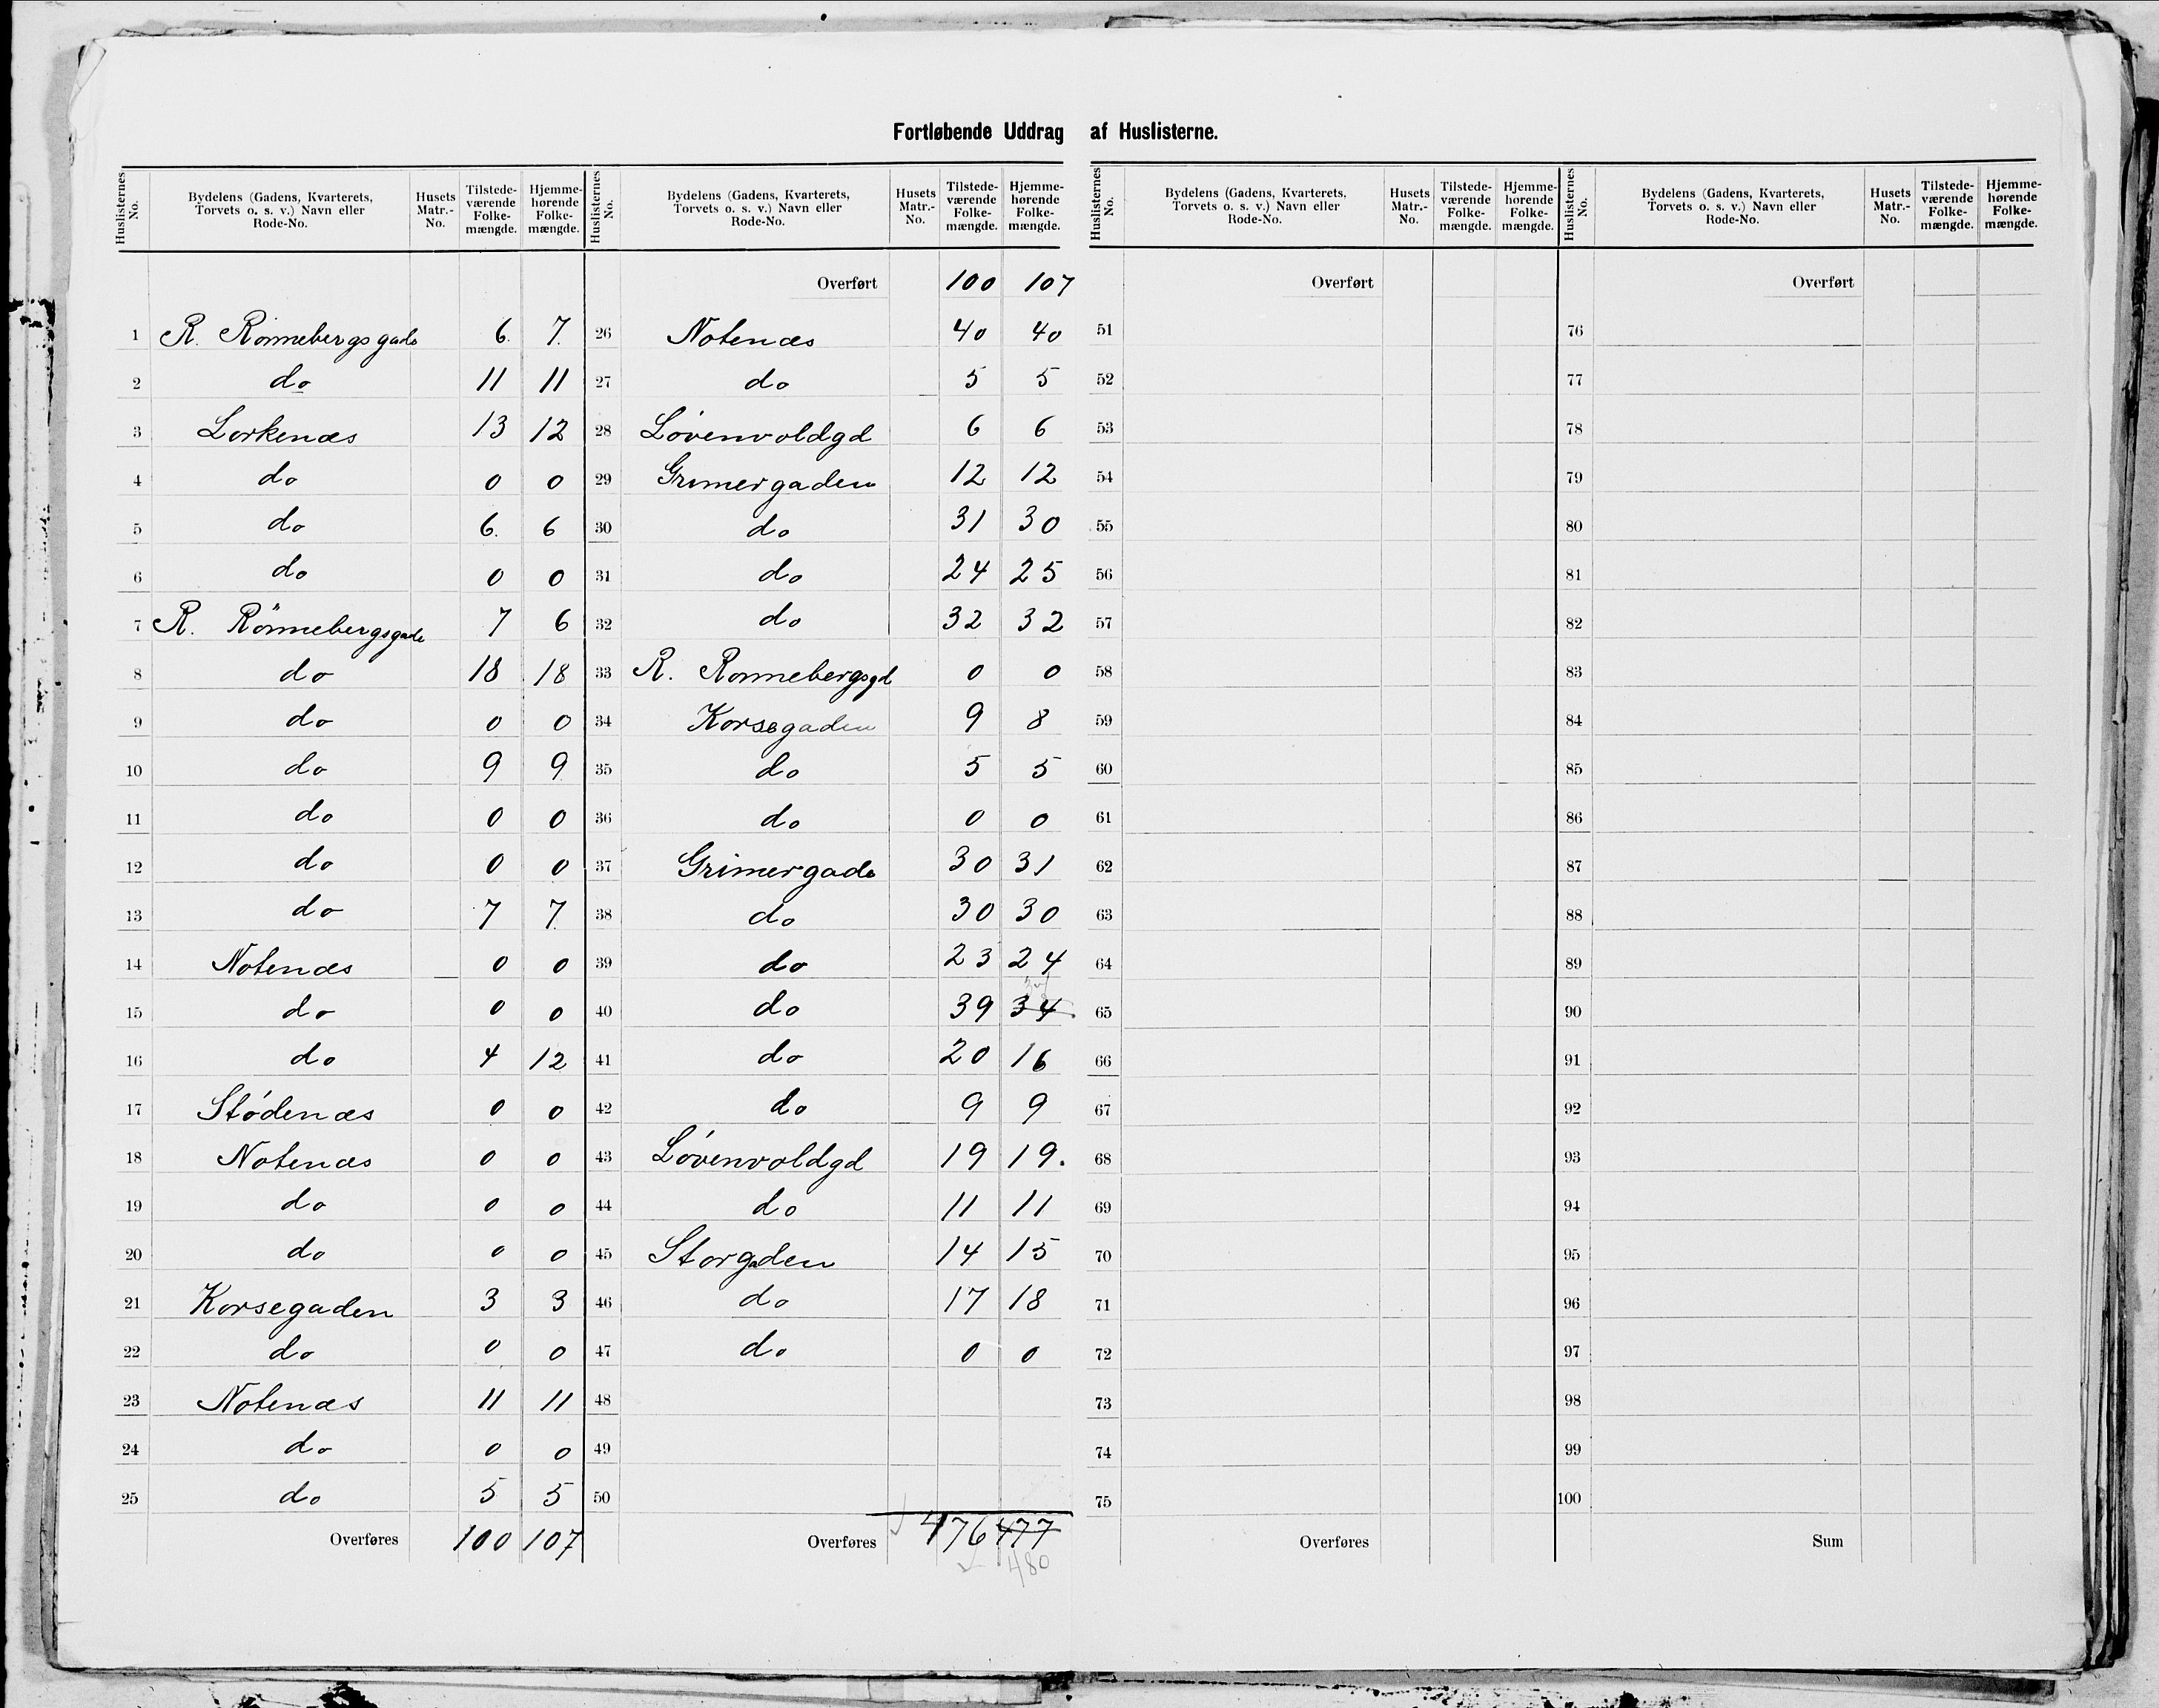 Fortløbende Uddrag af Huslisterne.
Huslisternes No. Bydelens (Gadens, Kvarterets, Torvets o. s. v.) Navn eller Rode-No. Husets Matr.-No. Tilstedeværende Folkemængde. Hjemmehørende Folkemængde.
1 R. Rönnebergsgade 6 7
2 do 11 11
3 Lorkenæs 13 12
4 do 0 0
5 do 6 6
6 do 0 0
7 R. Rönnebergsgade 7 6
8 do 18 18
9 do 0 0
10 do 9 9
11 do 0 0
12 do 0 0
13 do 7 7
14 Notenæs 0 0
15 do 0 0
16 do 4 12
17 Stødenæs 0 0
18 Notenæs 0 0
19 do 0 0
20 do 0 0
21 Korsegaden 3 3
22 do 0 0
23 Notenæs 11 11
24 do 0 0
25 do 5 5
Overføres 100 107
Huslisternes No. Bydelens (Gadens, Kvarterets, Torvets o. s. v.) Navn eller Rode-No. Husets Matr.-No. Tilstedeværende Folkemængde. Hjemmehørende Folkemængde.
Overført 100 107
26 Notenæs 40 40
27 do 5 5
28 Løvenvoldgd 6 6
29 Grimergaden 12 12
30 do 31 30
31 do 24 25
32 do 32 32
33 R. Ronnebergsgd 0 0
34 Korsegaden 9 8
35 do 5 5
36 do 0 0
37 Grimergade 30 31
38 do 30 30
39 do 23 24
40 do 39 34
41 do 20 16
42 do 9 9
43 Løvenvoldgd 19 19.
44 do 11 11
45 Storgaden 14 15
46 do 17 18
47 do 0 0
48
49
50
Overføres 476 477
480
Huslisternes No. Bydelens (Gadens, Kvarterets, Torvets o. s. v.) Navn eller Rode-No. Husets Matr.-No. Tilstedeværende Folkemængde. Hjemmehørende Folkemængde.
Overført
51
52
53
54
55
56
57
58
59
60
61
62
63
64
65
66
67
68
69
70
71
72
73
74
75
Overføres
Huslisternes No. Bydelens (Gadens, Kvarterets, Torvets o. s. v.) Navn eller Rode-No. Husets Matr.-No. Tilstedeværende Folkemængde. Hjemmehørende Folkemængde.
Overført
76
77
78
79
80
81
82
83
84
85
86
87
88
89
90
91
92
93
94
95
96
97
98
99
100
Sum